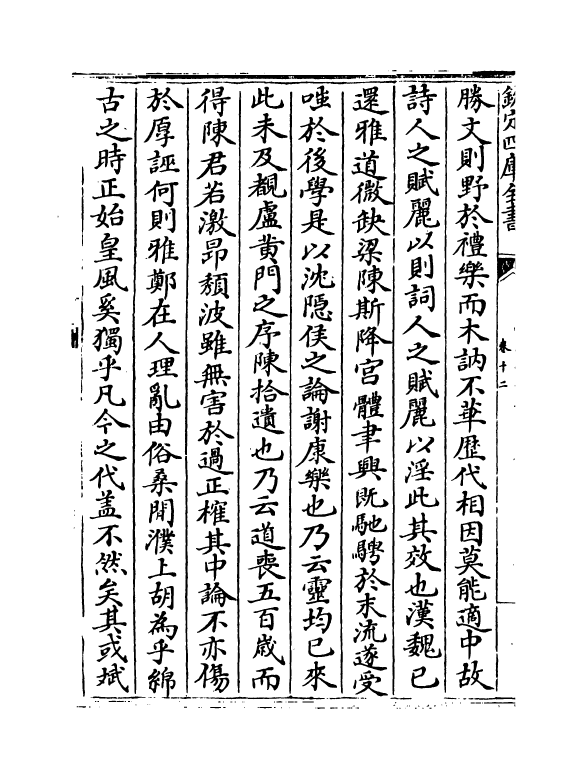 欽定四庫全書
卷十二
勝文則野於禮樂而木訥不華歷代相因莫能適中故
詩人之賦麗以則詞人之賦麗以淫此其效也漢魏已
還雅道微缺梁陳斯降宮體聿興既馳騁於末流遂受
嗤於後學是以沈隱侯之論謝康樂也乃云靈均已來
此未及覩盧黃門之序陳拾遺也乃云道喪五百歲而
得陳君若激昂頹波雖無害於過正榷其中論不亦傷
於厚誣何則雅鄭在人理亂由俗桑間濮上胡為乎綿
古之時正始皇風奚獨乎凡今之代盖不然矣其或斌